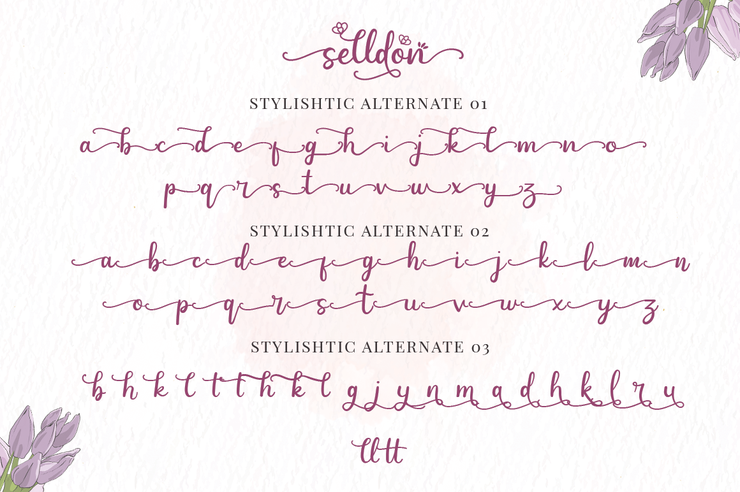 selldon
STYLISHTIC ALTERNATE 01
a b c d e f g h i j k l m n o
p q r s t u v w x y z
STYLISHTIC ALTERNATE 02
a b c d e f g h i j k l m n
o p q r s t u v w x y z
STYLISHTIC ALTERNATE 03
b h k l t t h k l g j y n m a d h k l r u
ll tt